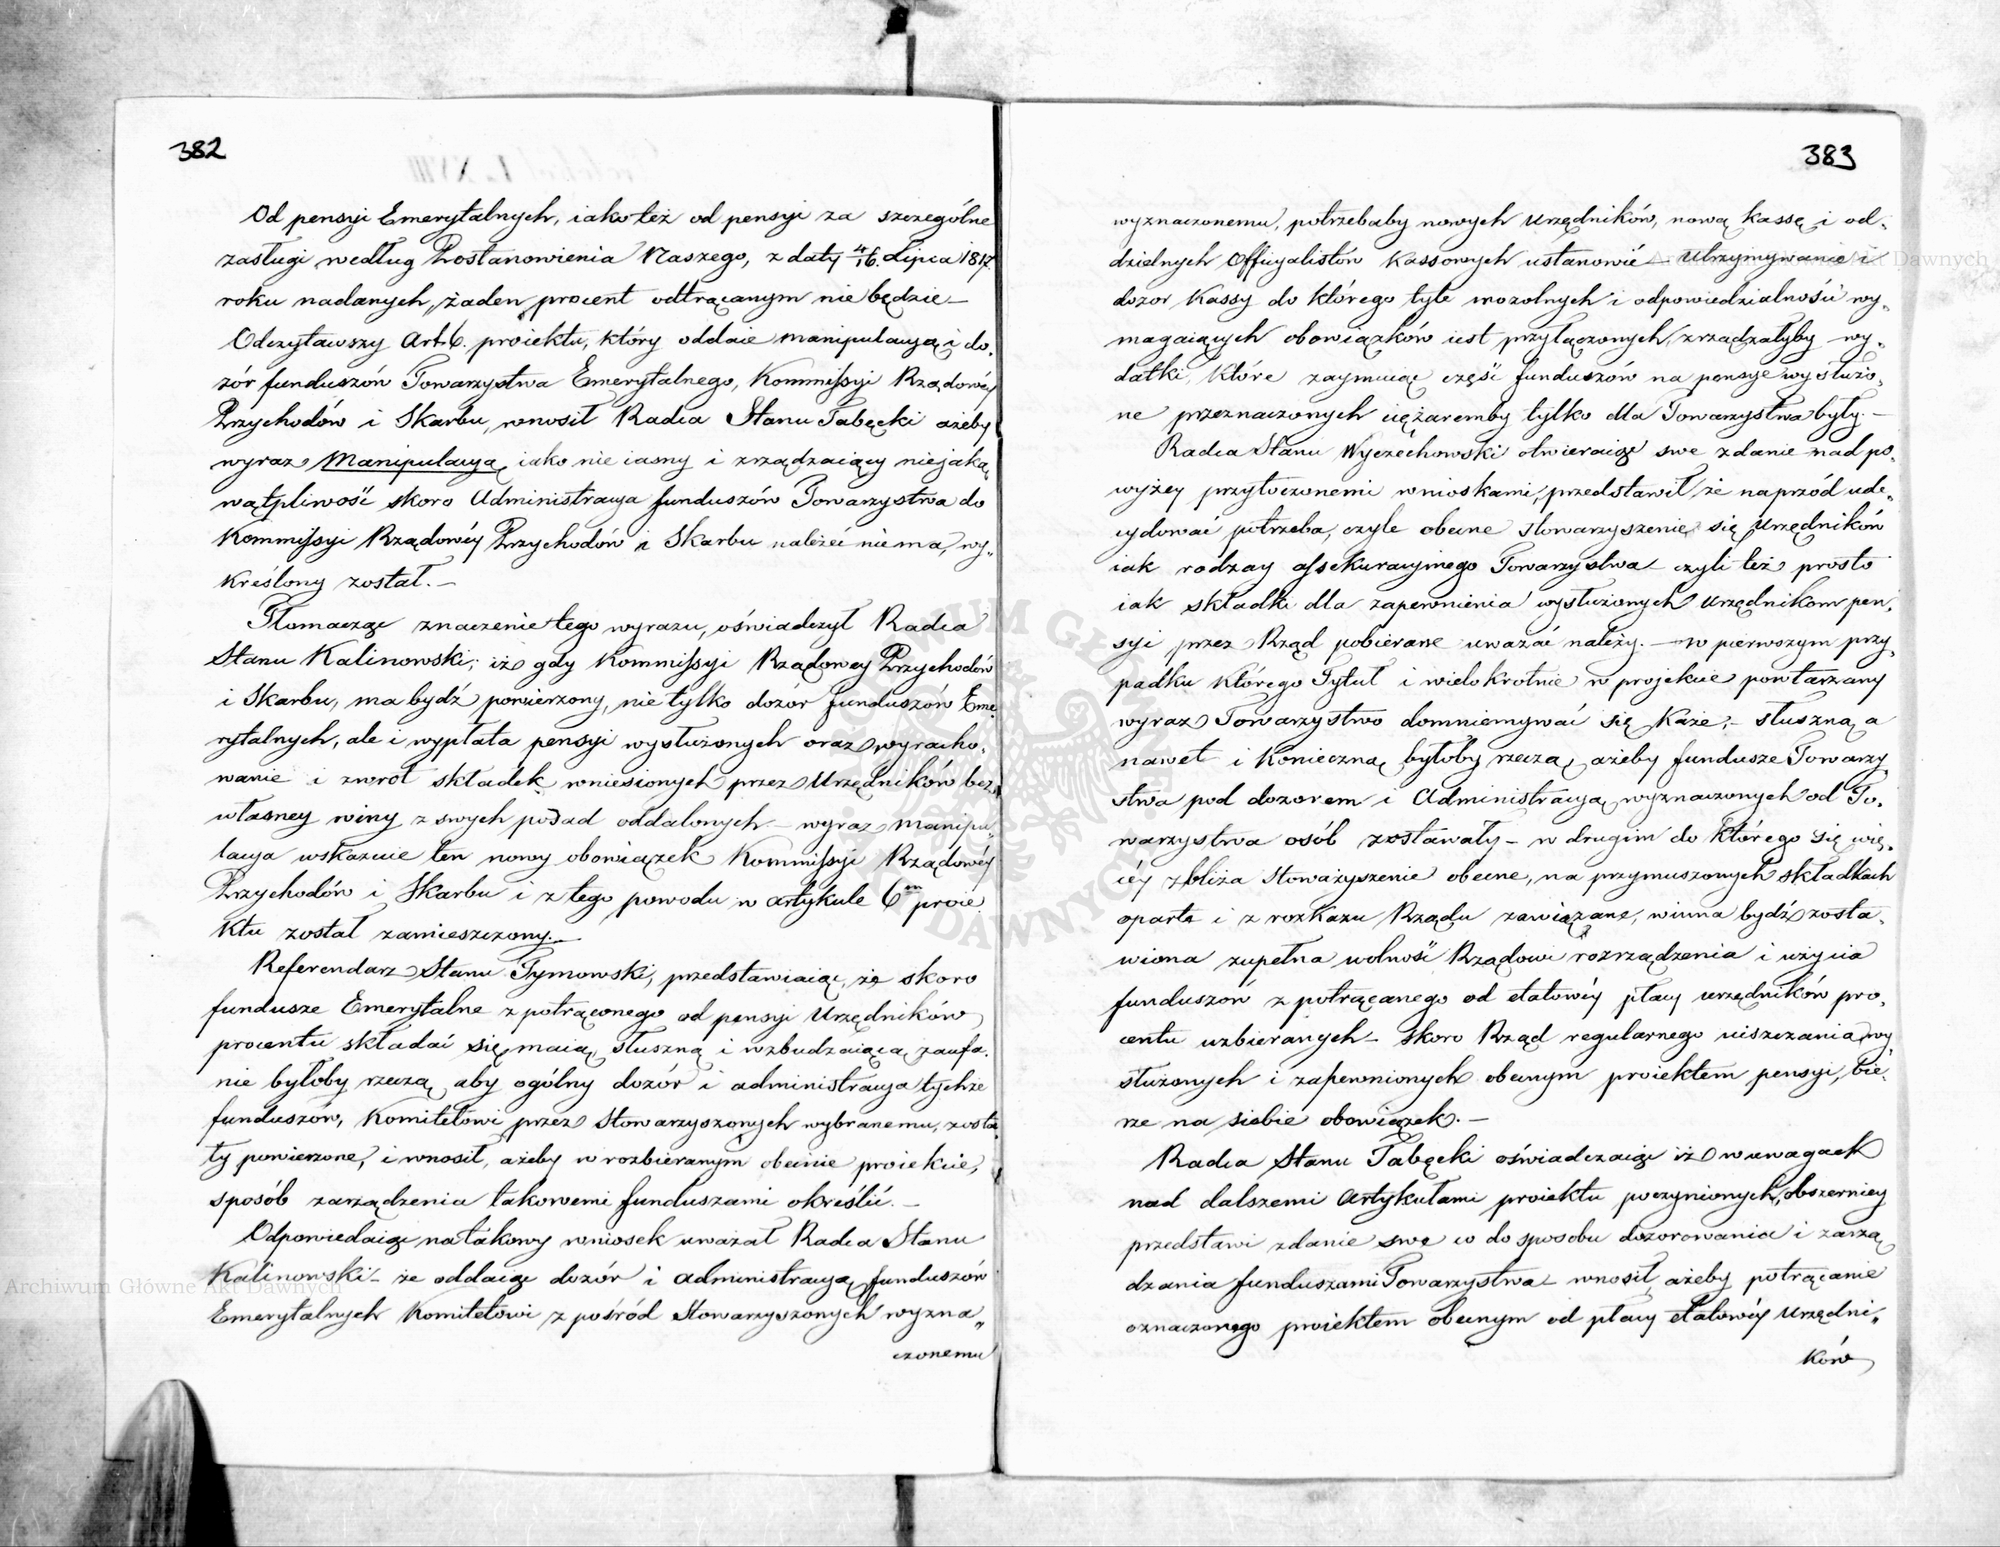 382
Od pensyi Emerytalnych, iako też od pensyi za szczególne
zasługi według Postanowienia Naszego, z daty 4/16. Lipca 1817.
roku nadanych, żaden procent odtrącanym nie będzie —
Odczytawszy Art. 6. proiektu, który oddaie manipulacyą i do„
zór funduszów Towarzystwa Emerytalnego, Kommissyi Rządowéy
Przychodów i Skarbu, wnosił Radca Stanu Tabęcki ażeby
wyraz Manipulacya, iako nie iasny i zrządzaiący niejaką
wątpliwość skoro Administracya funduszów Towarzystwa do
Kommissyi Rządowéy Przychodów i Skarbu należeć nie ma, wy„
kreślony został. —
Tłomacząc znaczenie tego wyrazu, oświadczył Radca
Stanu Kalinowski; iż gdy Kommissyi Rządowey Przychodów
i Skarbu, ma bydź powierzony, nie tylko dozór funduszów Eme„
rytalnych, ale i wypłata pensyi wysłużonych oraz wyracho„
wanie i zwrot składek wniesionych przez Urzędników bez
własney winy z swych posad oddalonych — wyraz manipu„
lacya wskazuie ten nowy obowiązek Kommissyi Rządowéy
Przychodów i Skarbu i z tego powodu w artykule 6m proie
ktu został zamieszczony. —
Referendarz Stanu Tymowski, przedstawiaiąc, że skoro
fundusze Emerytalne z potrąconego od pensyi Urzędników
procentu składać się maią, słuszną i wzbudzaiącą zaufa„
nie byłoby rzeczą, aby ogólny dozór i administracya tychże
funduszów, Komitetowi przez Stowarzyszonych wybranemu, zosta„
ły powierzone, i wnosił, ażeby w rozbieranym obecnie proiekcie,
sposób zarządzenia takowemi funduszami określić. —
Odpowiedaiąc na takowy wniosek uważał Radca Stanu
Kalinowski — że oddaiąc dozór i administracyą funduszów
Emerytalnych Komitetowi z pośród Stowarzyszonych wyzna„
czonemu
383
wyznaczonemu, potrzebaby nowych Urzędników, nową kassę i od„
dzielnych Officyalistów Kassowych ustanowić — Utrzymywanie i
dozor Kassy do którego tyle mozolnych i odpowiedzialności wy„
magaiących obowiązków iest przyłączonych, zrządzałyby wy„
datki, które zaymuiąc część funduszów na pensye wysłużo„
ne przeznaczonych ciężaremby tylko dla Towarzystwa były. —
Radca Stanu Wyczechowski otwieraiąc swe zdanie nad po„
wyżey przytoczonemi wnioskami, przedstawił, że naprzód zde„
cydować potrzeba, czyle obecne Stowarzyszenie się Urzędników
iak rodzay assekuracyinego Towarzystwa — czyli też prosto
iak składki dla zapewnienia wysłużonych Urzędnikom pen„
syi przez Rząd pobierane uważać należy. — w pierwszym przy„
padku którego Tytuł i wielokrotnie w projekcie powtarzany
wyraz Towarzystwo domniemywać się każe, — słuszną a
nawet i konieczną byłoby rzeczą, ażeby fundusze Towarzy„
stwa pod dozorem i Administracyą wyznaczonych od To„
warzystwa osób zostawały — w drugim do którego się wię„
céy zbliża stowarzyszenie obecne, na przymuszonych składkach
oparte i z rozkazu Rządu zawiązane, winna bydź zosta„
wiona zupełna wolność Rządowi rozrządzenia i użycia
funduszów z potrącanego od etatowéy płacy urzędników pro„
centu uzbieranych — skoro Rząd regularnego uiszczania wy„
służonych i zapewnionych obecnym proiektem pensyi, bie„
rze na siebie obowiązek. —
Radca Stanu Tabęcki oświadczaiąc iż w uwagach
nad dalszemi Artykułami proiektu poczynionych, obszerniey
przedstawi zdanie swe co do sposobu dozorowania i zarzą
dzania funduszami Towarzystwa — wnosił ażeby potrącanie
oznaczonego proiektem obecnym od płacy etatowéy Urzędni„
ków
Archiwum Główne Akt Dawnych